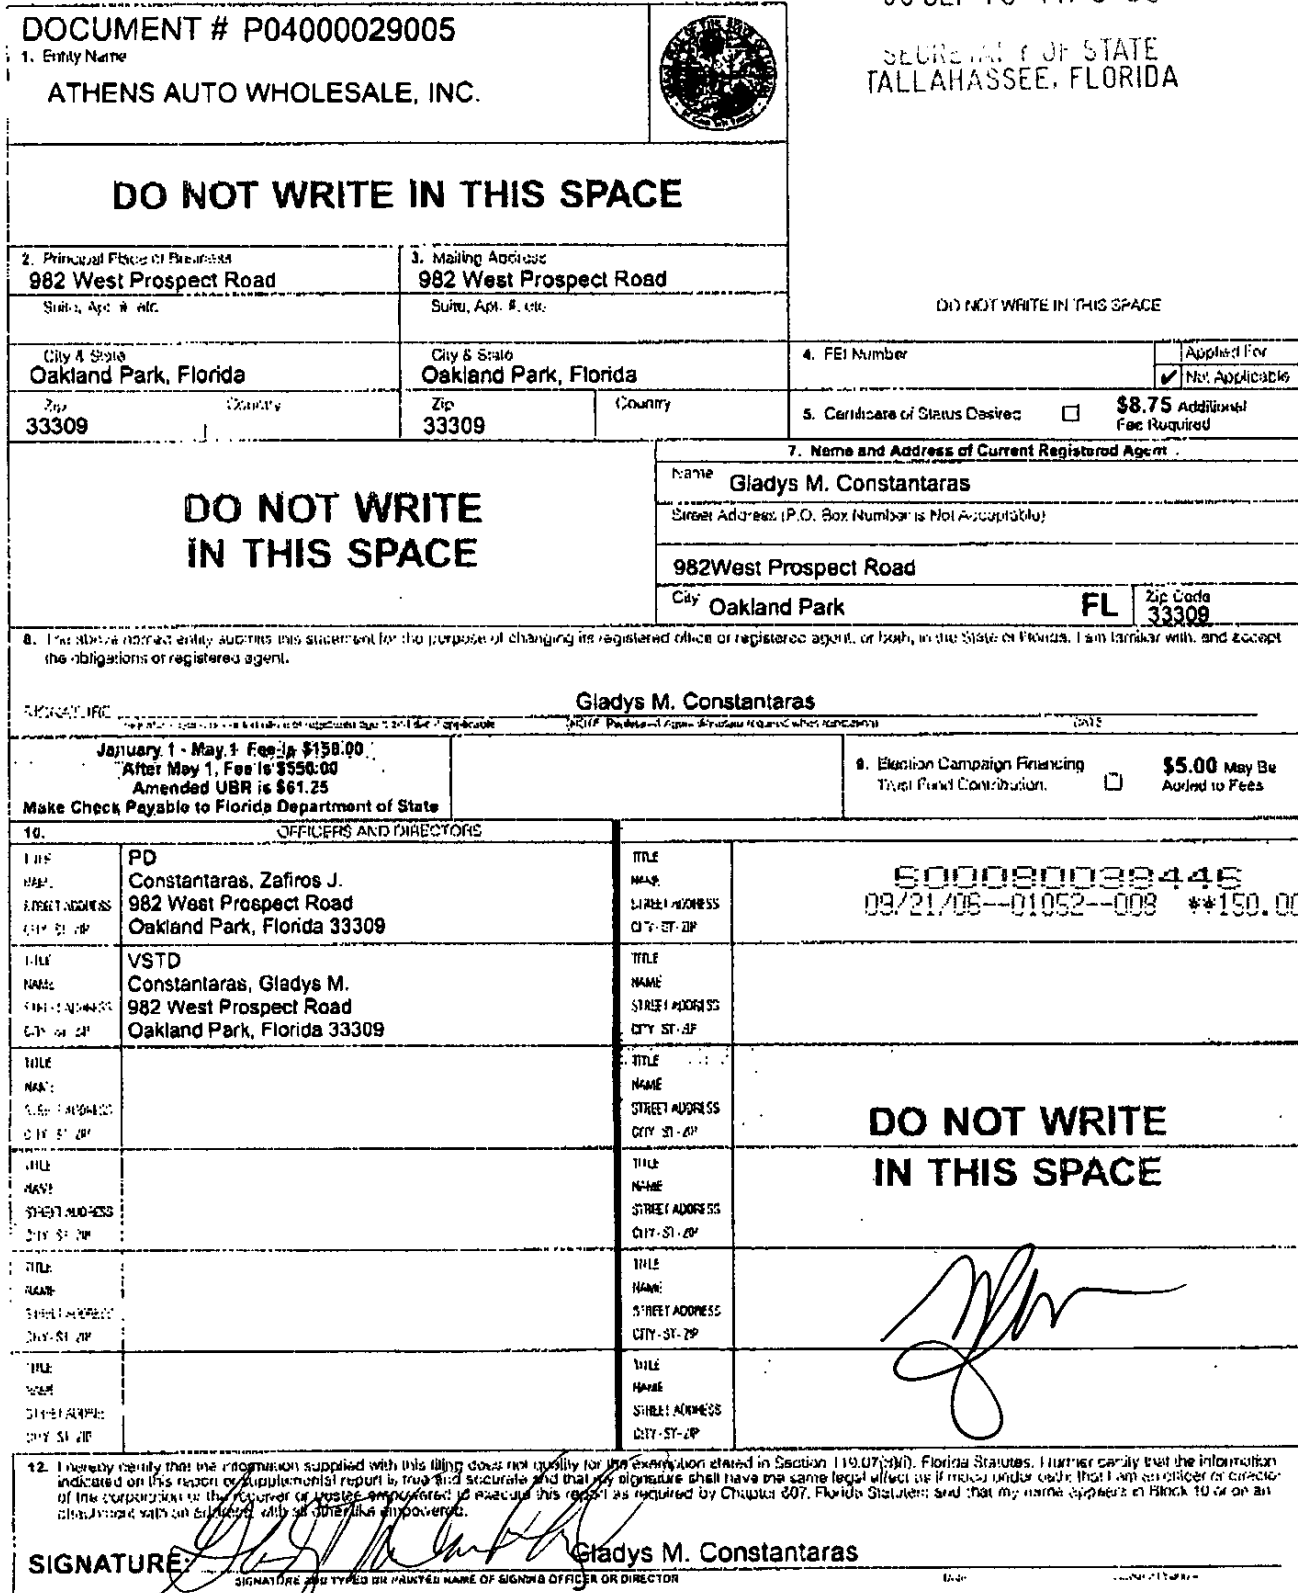 DOCUMENT # P04000029005
1. Entity Name
ATHENS AUTO WHOLESALE, INC.
SECRETARY OF STATE
TALLAHASSEE, FLORIDA
DO NOT WRITE IN THIS SPACE
2. Principal Place of Business
982 West Prospect Road
Suite, Apt. #, etc.
City & State
Oakland Park, Florida
Zip
33309
Country
3. Mailing Address
982 West Prospect Road
Suite, Apt. #, etc.
City & State
Oakland Park, Florida
Zip
33309
Country
DO NOT WRITE IN THIS SPACE
4. FEI Number
Applied For
✓ Not Applicable
5. Certificate of Status Desired ☐ $8.75 Additional
Fee Required
DO NOT WRITE
IN THIS SPACE
7. Name and Address of Current Registered Agent
Name Gladys M. Constantaras
Street Address (P.O. Box Number is Not Acceptable)
982West Prospect Road
City Oakland Park FL Zip Code
33309
8. The above named entity submits this statement for the purpose of changing its registered office or registered agent, or both, in the State of Florida. I am familiar with, and accept
the obligations of registered agent.
SIGNATURE Gladys M. Constantaras
DATE
January 1 - May 1 Fee is $150.00
After May 1, Fee is $550.00
Amended UBR is $61.25
Make Check Payable to Florida Department of State
9. Election Campaign Financing
Trust Fund Contribution. ☐ $5.00 May Be
Added to Fees
10. OFFICERS AND DIRECTORS
TITLE PD
NAME Constantaras, Zafiros J.
STREET ADDRESS 982 West Prospect Road
CITY-ST-ZIP Oakland Park, Florida 33309
TITLE VSTD
NAME Constantaras, Gladys M.
STREET ADDRESS 982 West Prospect Road
CITY-ST-ZIP Oakland Park, Florida 33309
TITLE
NAME
STREET ADDRESS
CITY-ST-ZIP
TITLE
NAME
STREET ADDRESS
CITY-ST-ZIP
TITLE
NAME
STREET ADDRESS
CITY-ST-ZIP
TITLE
NAME
STREET ADDRESS
CITY-ST-ZIP
TITLE
NAME
STREET ADDRESS
CITY-ST-ZIP
600080039446
09/21/06--01052--008 **150.00
TITLE
NAME
STREET ADDRESS
CITY-ST-ZIP
TITLE
NAME
STREET ADDRESS
CITY-ST-ZIP
TITLE
NAME
STREET ADDRESS
CITY-ST-ZIP
DO NOT WRITE
IN THIS SPACE
TITLE
NAME
STREET ADDRESS
CITY-ST-ZIP
TITLE
NAME
STREET ADDRESS
CITY-ST-ZIP
12. I hereby certify that the information supplied with this filing does not qualify for the exemption stated in Section 119.07(3)(i), Florida Statutes. I further certify that the information
indicated on this report or supplemental report is true and accurate and that my signature shall have the same legal effect as if made under oath; that I am an officer or director
of the corporation or the receiver or trustee empowered to execute this report as required by Chapter 607, Florida Statutes; and that my name appears in Block 10 or on an
attachment with an address, with all other like empowered.
SIGNATURE: Gladys M. Constantaras
SIGNATURE AND TYPED OR PRINTED NAME OF SIGNING OFFICER OR DIRECTOR
Date